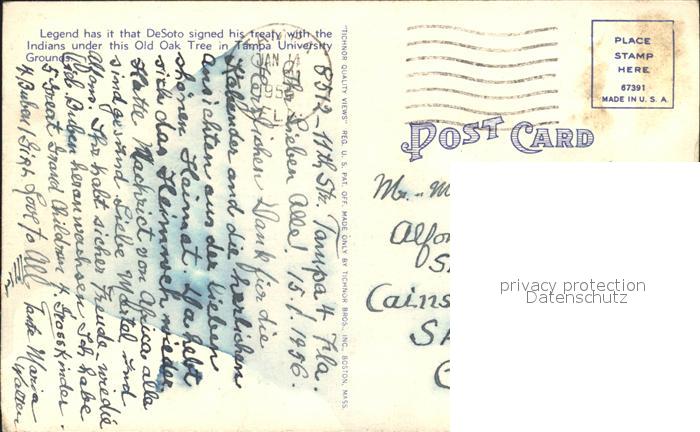 Legend has it that DeSoto signed his treaty with the
Indians under this Old Oak Tree in Tampa University
Grounds.
JAN
195
"TICHNOR QUALITY VIEWS" REG. U. S. PAT. OFF. MADE ONLY BY TICHNOR BROS., INC., BOSTON, MASS.
PLACE
STAMP
HERE
67391
MADE IN U. S. A.
POST CARD
8512-11th Str. Tampa 4 Fla.
Ihr Lieben Alle! 15./1. 1956.
Herzlichen Dank für die
Kalender und die herlichen
Ansichten aus der lieben
shönen Haimat. Da hebt
sich das Heimweh wieder.
Hatte Nachrict von Africa, alle
sind gesund. Liebe Märtel und
Alfons. Ihr habt sicher Freude wie die
Buben heranwachsen. Ich habe
5 Great Grand Children 4. Grosskinder.
4 Buben 1 Girl. Love to All
Tante Maria
Mr.
Alfo
S
Cains
SA
privacy protection
Datenschutz